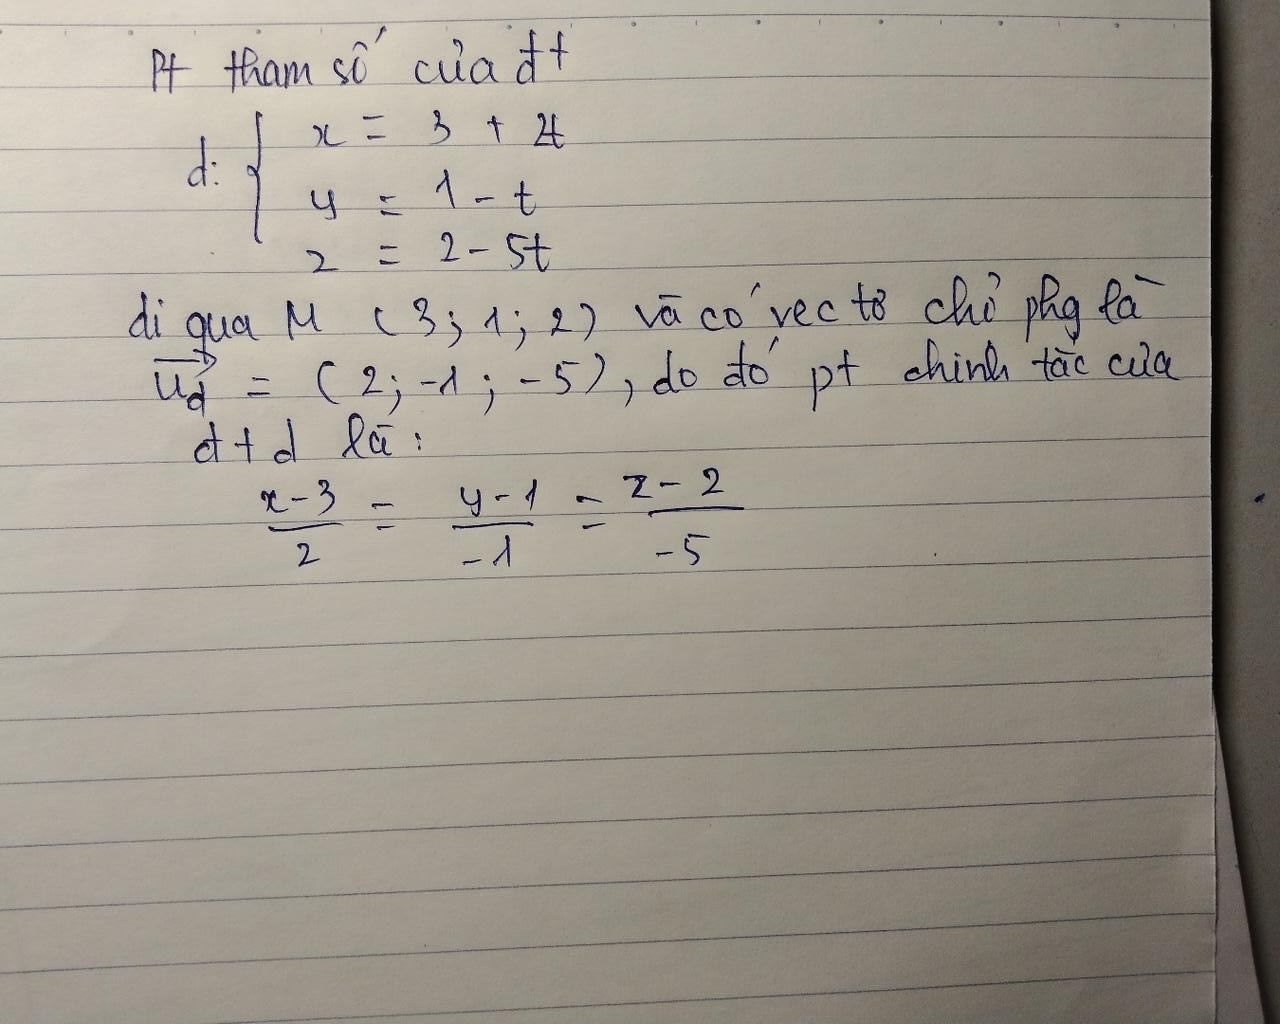 Pt tham số của đt
d: { x = 3 + 2t
y = 1 - t
z = 2 - 5t
đi qua M (3; 1; 2) và có vec tơ chỉ phg là
$\overrightarrow{u_d}$ = (2; -1; -5), do đó pt chính tắc của
đt d là:
$\frac{x-3}{2} = \frac{y-1}{-1} = \frac{z-2}{-5}$